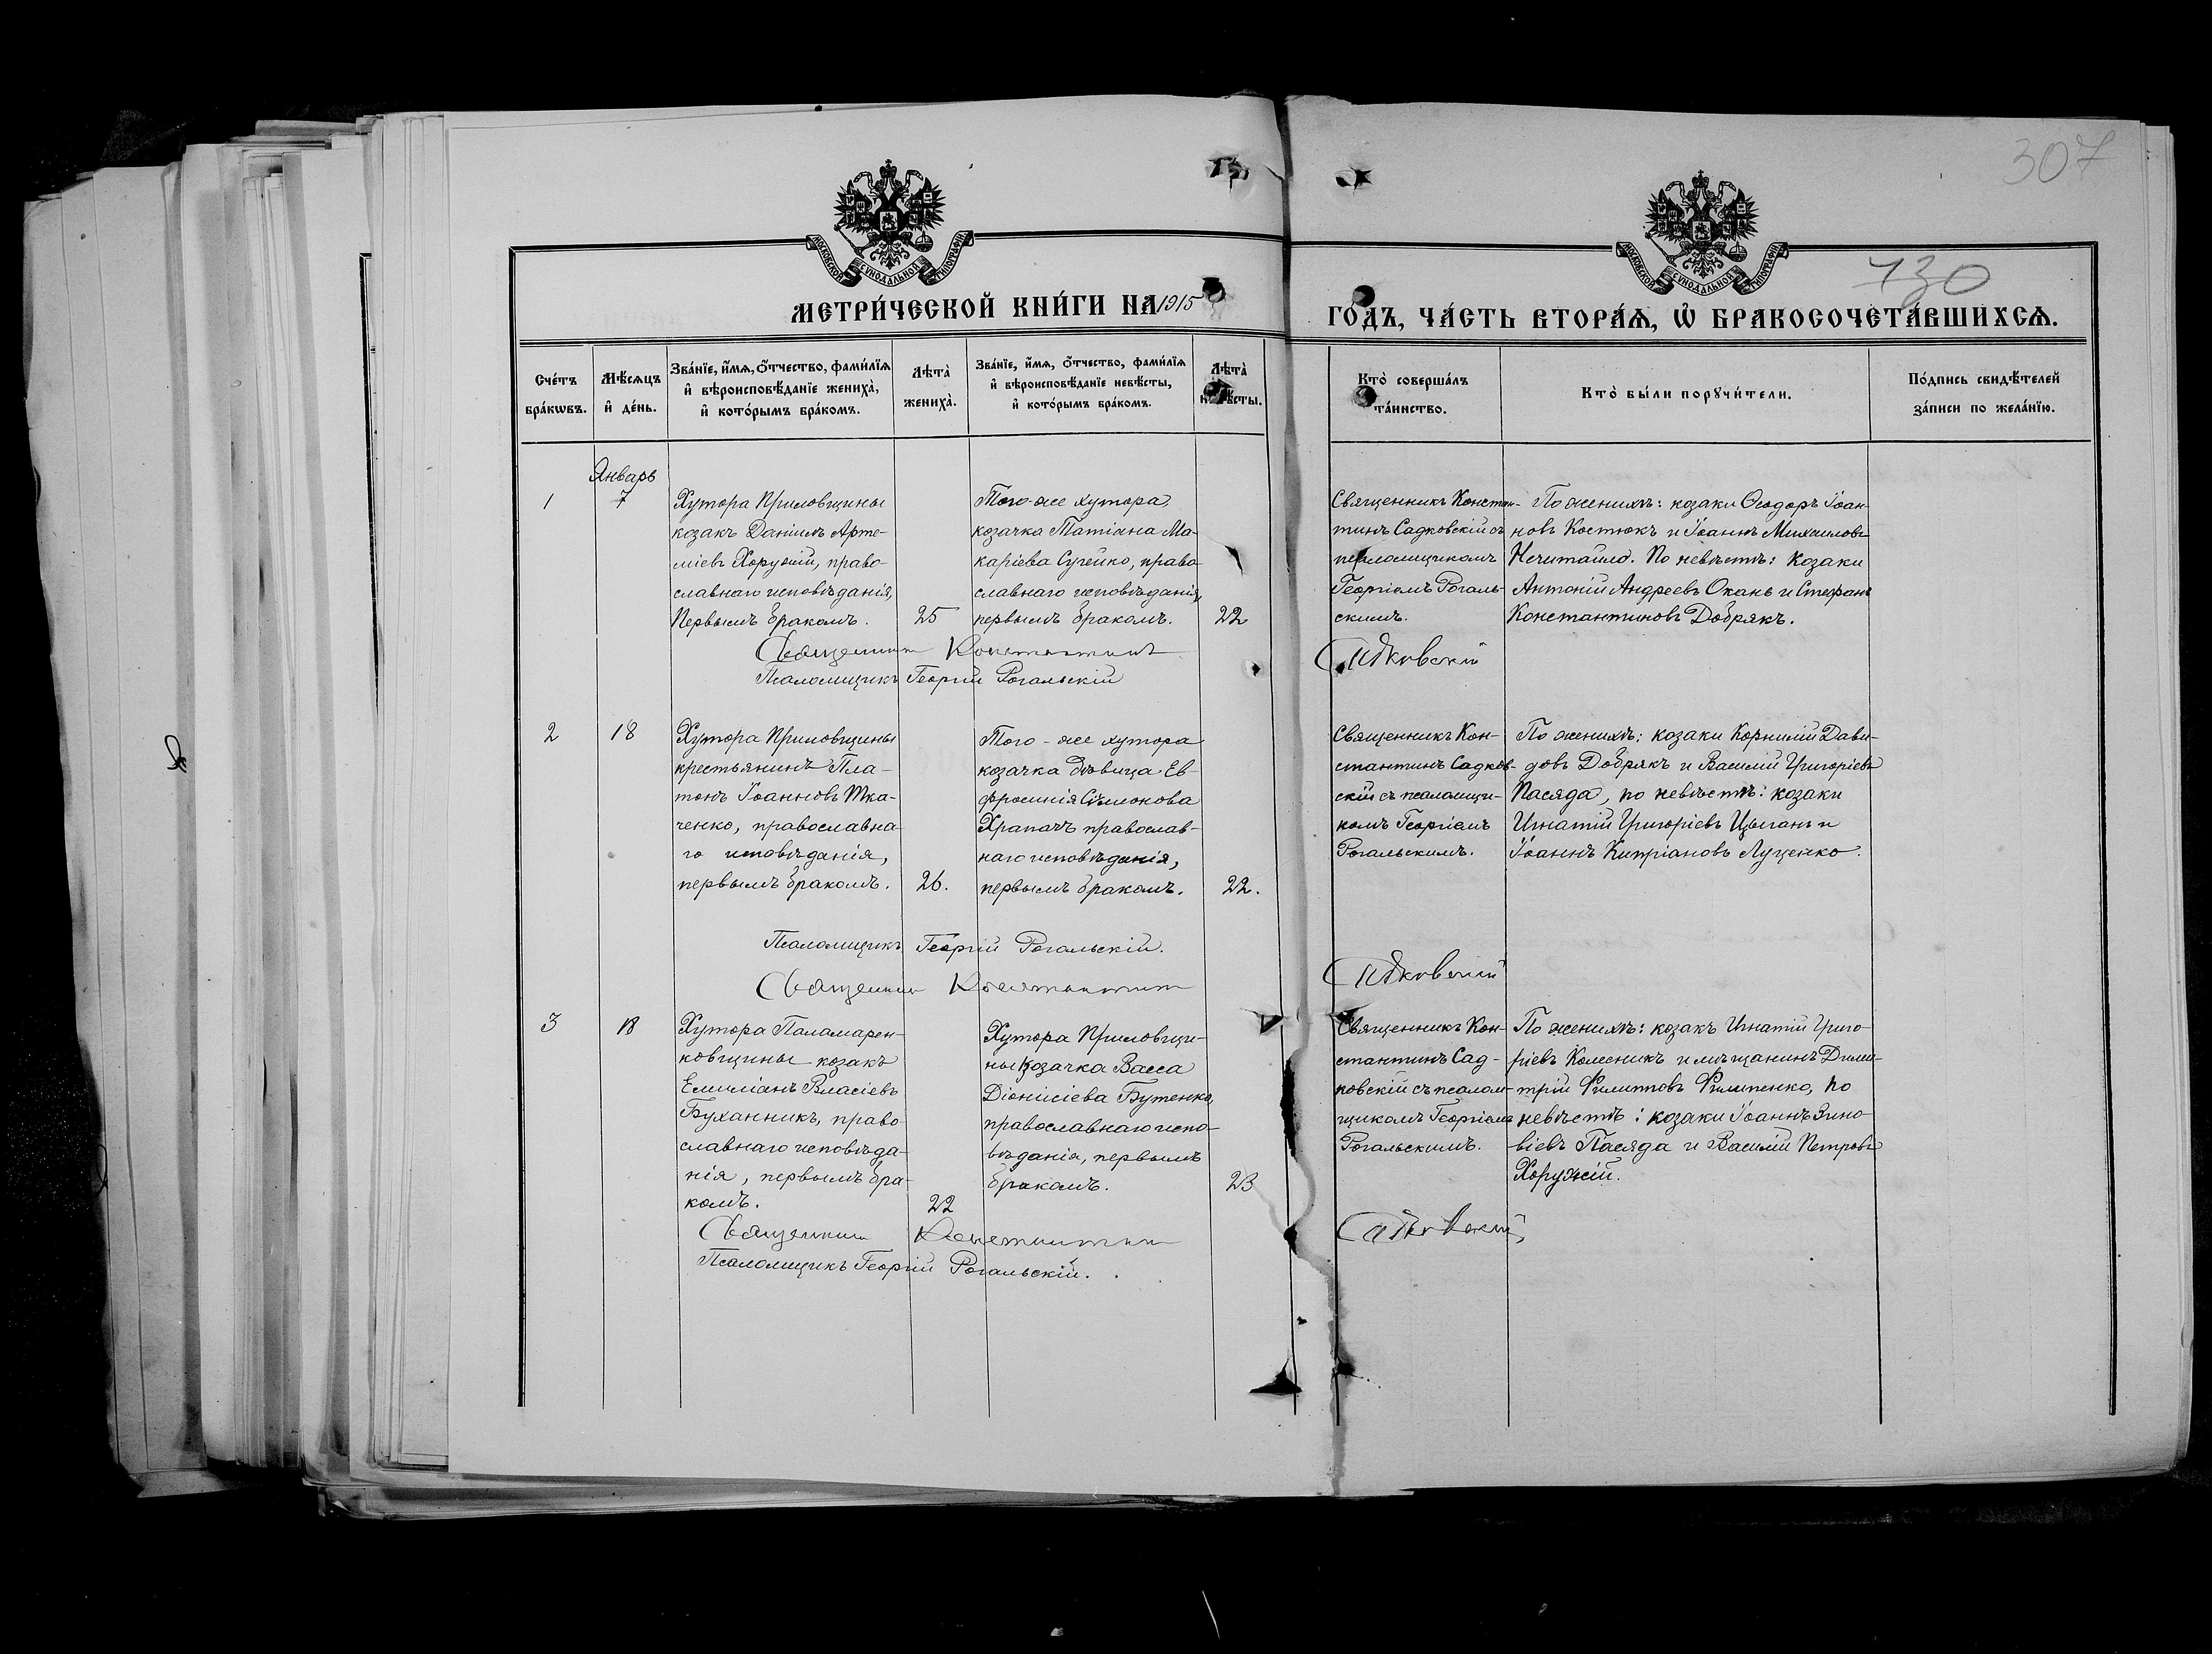 307
730
МОСКОВСКОЙ СѴНОДАЛЬНОЙ ТИПОГРАФІИ
МОСКОВСКОЙ СѴНОДАЛЬНОЙ ТИПОГРАФІИ
МЕТРИ́ЧЕСКОЙ КНИ́ГИ НА 1915
ГО́ДЪ, ЧА́СТЬ ВТОРА́Я, Ѡ БРАКОСОЧЕТА́ВШИХСЯ.
Сче́тъ
бра́кѡвъ.
Мѣ́сяцъ
и҆ де́нь.
Зва́нїе, и҆́мя, ѻ҆́тчество, фами́лїя
и҆ вѣроисповѣ́данїе жениха̀,
и҆ кото́рымъ бра́комъ.
Лѣта̀
жениха̀.
Зва́нїе, и҆́мя, ѻ҆́тчество, фами́лїя
и҆ вѣроисповѣ́данїе невѣ́сты,
и҆ кото́рымъ бра́комъ.
Лѣта̀
невѣ́сты.
Кто̀ соверша́лъ
та́инство.
Кто̀ бы́ли порꙋчи́тели.
По́дпись свидѣ́телей
за́писи по жела́нїю.
Январь
1
7
Хутора Приловщины
козакъ Даніилъ Арте-
міевъ Хоружій, право-
славнаго исповѣданія,
Первымъ бракомъ.
25
Того-же хутора,
козачка Татіана Ма-
каріева Сугейко, право-
славнаго исповѣданія,
первымъ бракомъ.
22
Священникъ Констан-
тинъ Садковскій съ
псаломщикомъ
Георгіемъ Рогаль-
скимъ.
По женихѣ: козаки Ѳеодоръ Іоан-
новъ Костюкъ и Іоаннъ Михаиловъ
Нечитайло. По невѣстѣ: козаки
Антоній Андреевъ Окань и Стефанъ
Константиновъ Добрякъ.
Священникъ Константинъ Садковскій
Псаломщикъ Георгій Рогальскій
2
18
Хутора Приловщины
крестьянинъ Пла-
тонъ Іоанновъ Тка-
ченко, православна-
го исповѣданія,
первымъ бракомъ.
26.
Того-же хутора
козачка дѣвица Ев-
фросинія Сѵмеонова
Храпачъ православ-
наго исповѣданія,
первымъ бракомъ.
22.
Священникъ Кон-
стантинъ Садков-
скій съ псаломщи-
комъ Георгіемъ
Рогальскимъ.
По женихѣ: козаки Корнилій Дави-
довъ Добрякъ и Василій Григоріевъ
Пасяда, по невѣстѣ: козаки
Игнатій Григоріевъ Цыгань и
Іоаннъ Кипріановъ Луценко.
Псаломщикъ Георгій Рогальскій.
Священникъ Константинъ Садковскій
3
18
Хутора Паламарен-
ковщины козакъ
Емиліанъ Власіевъ
Буханникъ, право-
славнаго исповѣда-
нія, первымъ бра-
комъ.
22
Хутора Приловщи-
ны козачка Васса
Діонисіева Бутенко,
православнаго испо-
вѣданія, первымъ
бракомъ.
23
Священникъ Кон-
стантинъ Сад-
ковскій съ псалом-
щикомъ Георгіемъ
Рогальскимъ.
По женихѣ: козакъ Игнатій Григо-
ріевъ Колесникъ и мѣщанинъ Дими-
трій Филипповъ Филипенко, по
невѣстѣ: козаки Іоаннъ Зино-
віевъ Пасяда и Василій Петровъ
Хоружій.
Священникъ Константинъ Садковскій
Псаломщикъ Георгій Рогальскій.